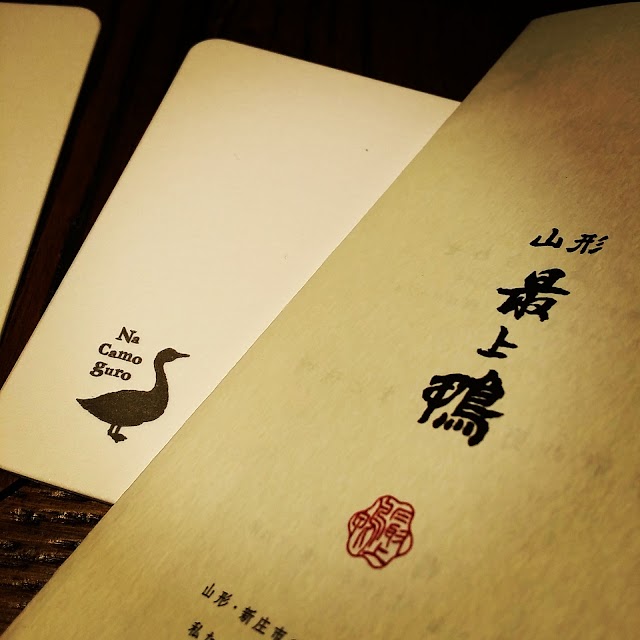 Na
Camo
guro
山形
最上鴨
山形・新庄市
私た